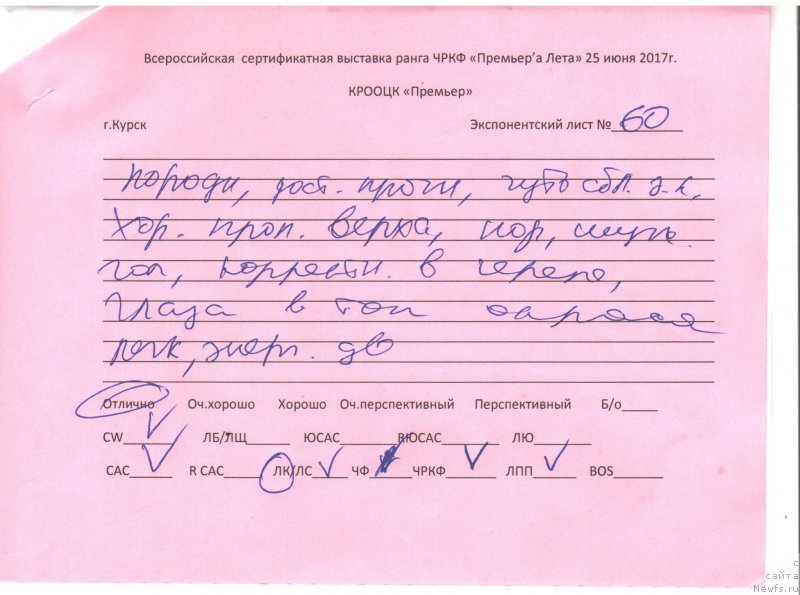 Всероссийская сертификатная выставка ранга ЧРКФ «Премьер’а Лета» 25 июня 2017г.
КРООЦК «Премьер»
г.Курск Экспонентский лист № 60
породн, дост. прочн, чуть сбл. з.к,
Хор. проп. верха,
гол, корректн. в черепе,
глаза в тон окраса
легк, энерг. дв
Отлично Оч.хорошо Хорошо Оч.перспективный Перспективный Б/о
CW ЛБ/ЛЩ ЮСАС RЮСАС ЛЮ
САС R САС ЛК/ЛС ЧФ ЧРКФ ЛПП BOS
с
сайта
Newfs.ru